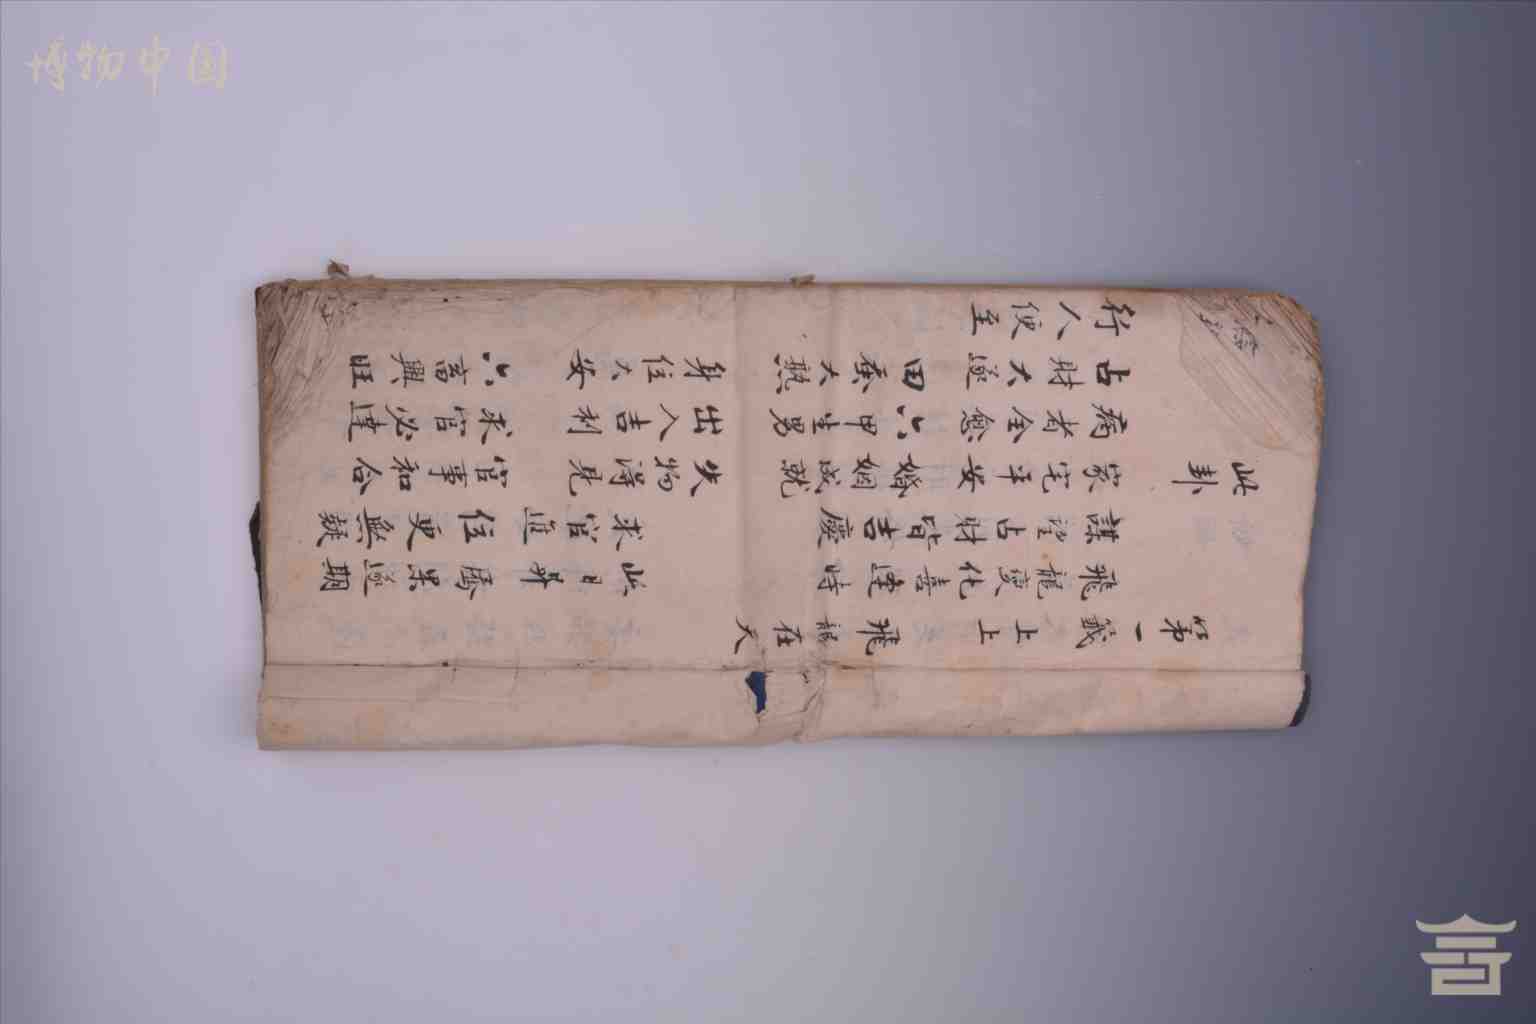 博物中国
第一籤 上上 飛龍在天
飛龍變化喜逢時 此日昇騰果遂期
謀望占財皆吉慶 求官進位更無疑
此卦 家宅平安 婚姻成就 失物淂見 官事和合
病者全愈 六甲生男 出入吉利 求官必達
占財大遂 田蚕大熟 身位大安 六畜興旺
行人便至